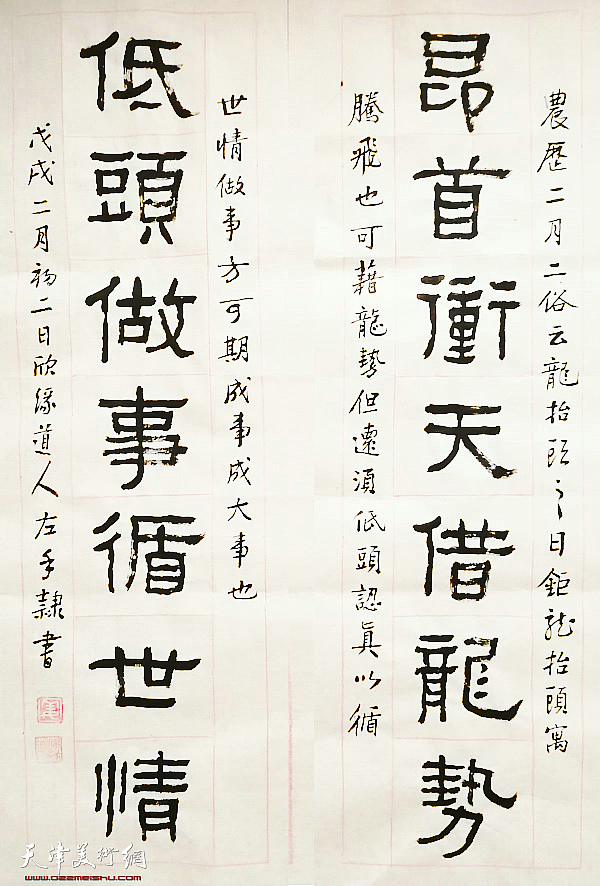 農歷二月二俗云龍抬頭之日鉅龍抬頭寓
昂首衝天借龍勢
騰飛也可藉龍勢但還須低頭認真以循
世情做事方可期成事成大事也
低頭做事循世情
戊戌二月初二日欣缘道人左手隸書
天津美術網
www.022meishu.com